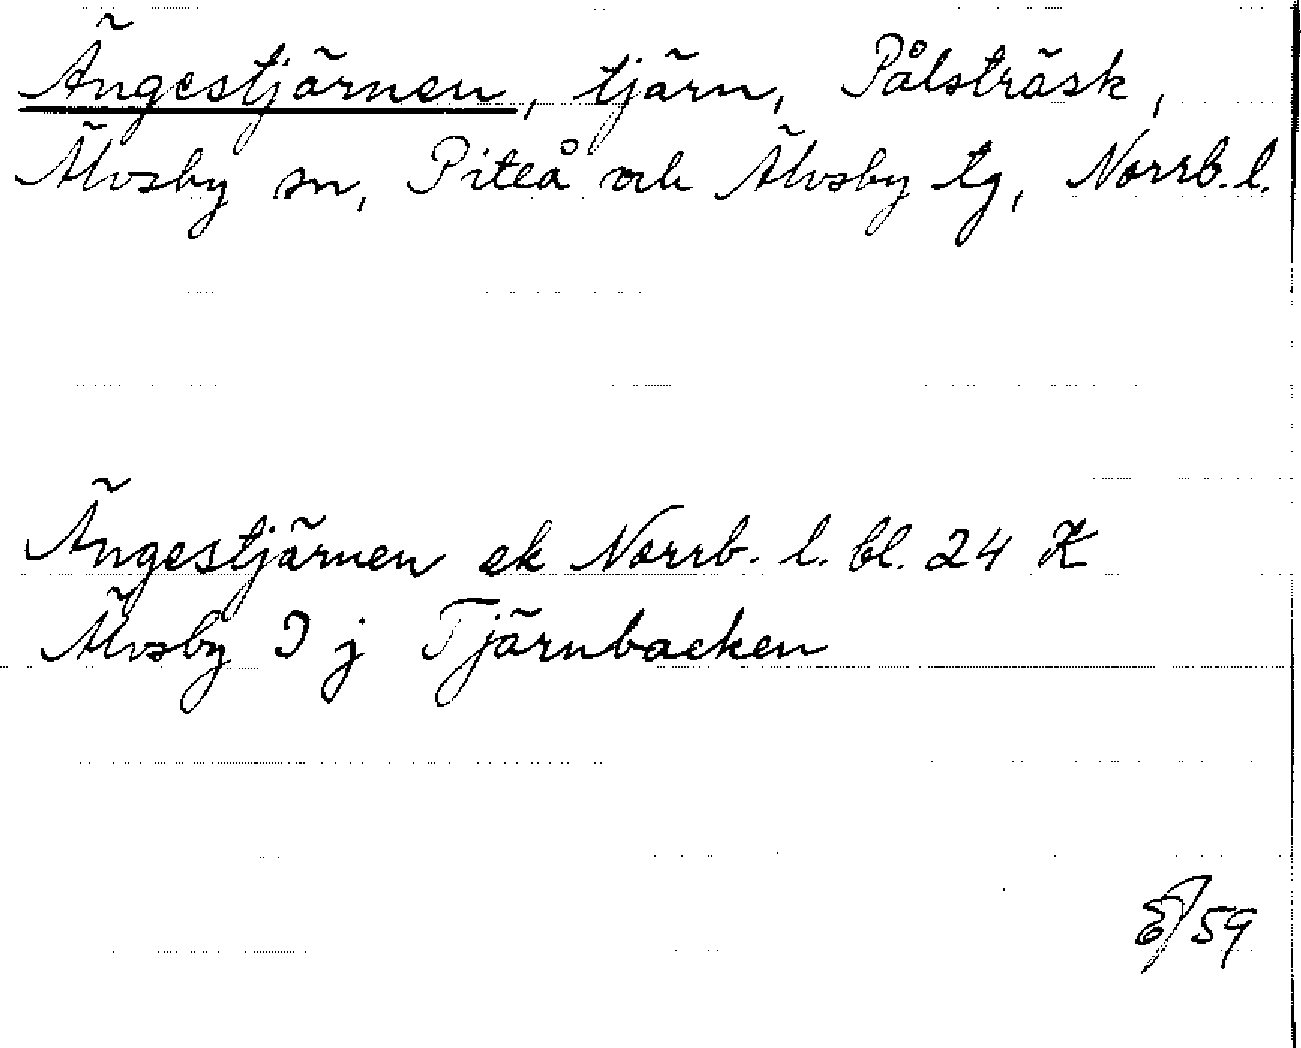 Ängestjärnen, tjärn, Pålsträsk,
Älvsby sn, Piteå och Älvsby tg, Norrb. l.
Ängestjärnen ek Norrb. l. bl. 24 K
Älvsby I j Tjärnbacken
59